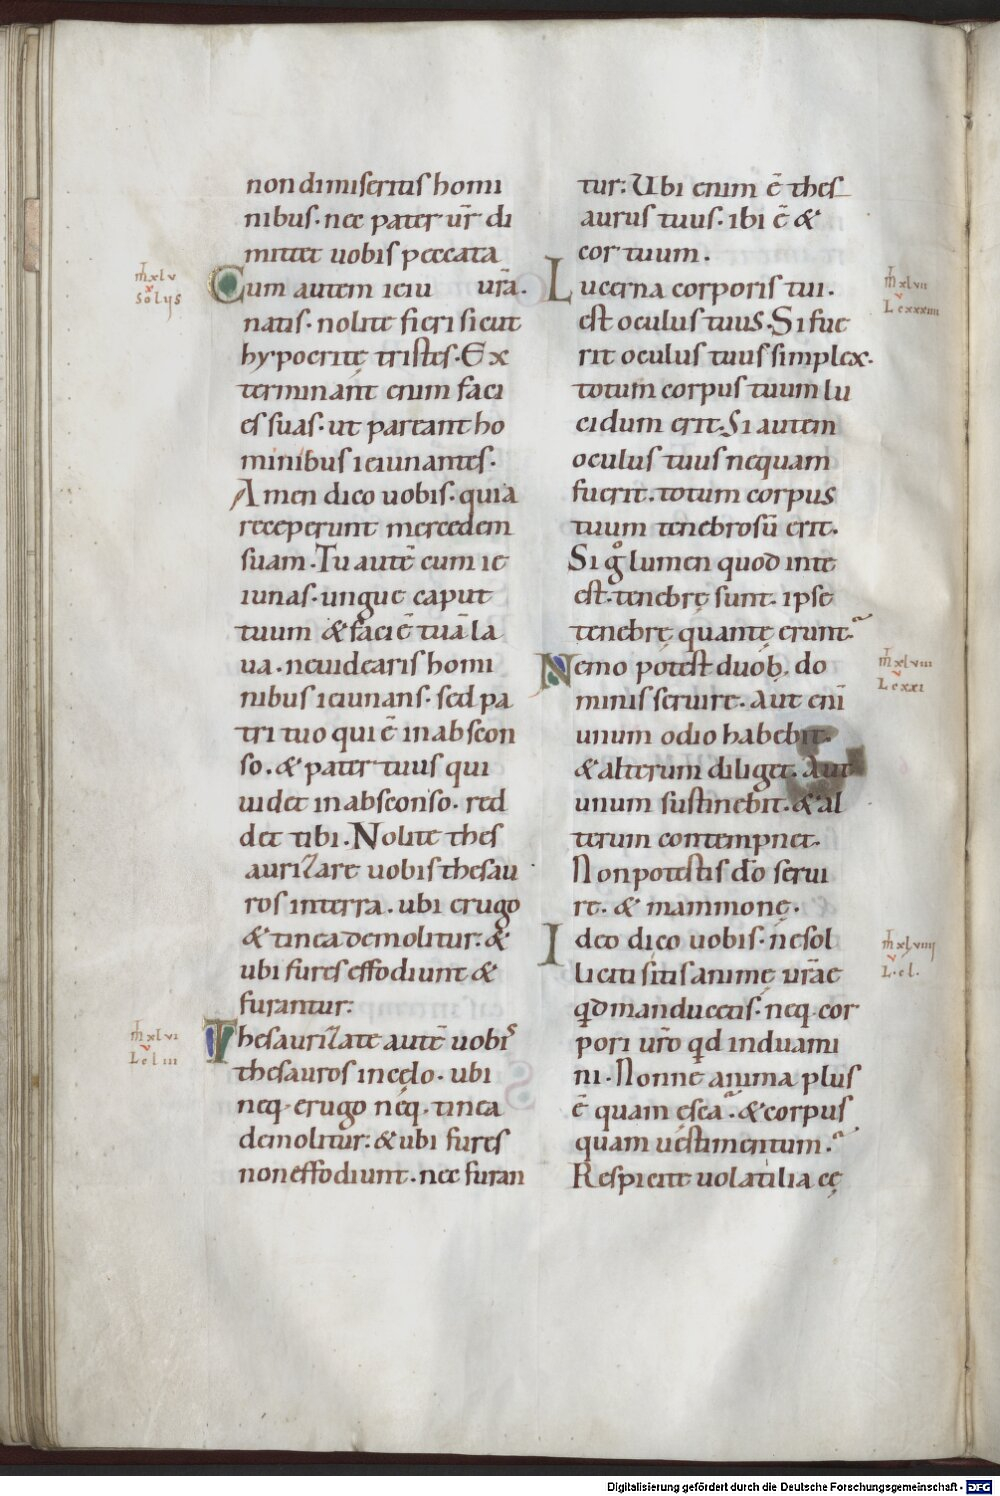 non dimiseritis homi
nibus. nec pater ur̄ di
mittet uobis peccata
m̄ xlv
solus
Cum autem ieiu ura̅.
natis. nolite fieri sicut
hypocritę tristes. Ex
terminant enim faci
es suas. ut pareant ho
minibus ieiunantes.
Amen dico uobis. quia
receperunt mercedem
suam. Tu autē cum ie
iunas. ungue caput
tuum & faciē tuā la
ua. ne uidearis homi
nibus ieiunans. sed pa
tri tuo qui ē in abscon
so. & pater tuus qui
uidet in absconso. red
det tibi. Nolite thes
aurizare uobis thesau
ros in terra. ubi erugo
& tinea demolitur. &
ubi fures effodiunt &
furantur.
m̄ xlvi
L clııı
Thesaurizate autē uobis
thesauros in cęlo. ubi
neq. erugo neq. tinea
demolitur. & ubi fures
non effodiunt. nec furan
tur. Ubi enim ē thes
aurus tuus. ibi ē &
cor tuum.
m̄ xlvii
L cxxxiııı
Lucerna corporis tui.
est oculus tuus. Si fue
rit oculus tuus simplex.
totum corpus tuum lu
cidum erit. Si autem
oculus tuus nequam
fuerit. totum corpus
tuum tenebrosū erit.
Si gͦ lumen quod in te
est. tenebrę sunt. ipse
tenebrę quantę erunt.
m̄ xlviii
L cxxi
Nemo potest duob; do
minis seruire. Aut enī
unum odio habebit.
& alterum diliget. Aut
unum sustinebit. & al
terum contempnet.
Non potestis dō serui
re. & mammonę.
m̄ xlviııı
L. cl.
Ideo dico uobis. ne sol
liciti sitis animę urāe
qđ manducetis. neq. cor
pori urō qđ induami
ni. Nonne anima plus
ē quam esca. & corpus
quam uestimentum.
Respicite uolatilia cę
Digitalisierung gefördert durch die Deutsche Forschungsgemeinschaft - DFG